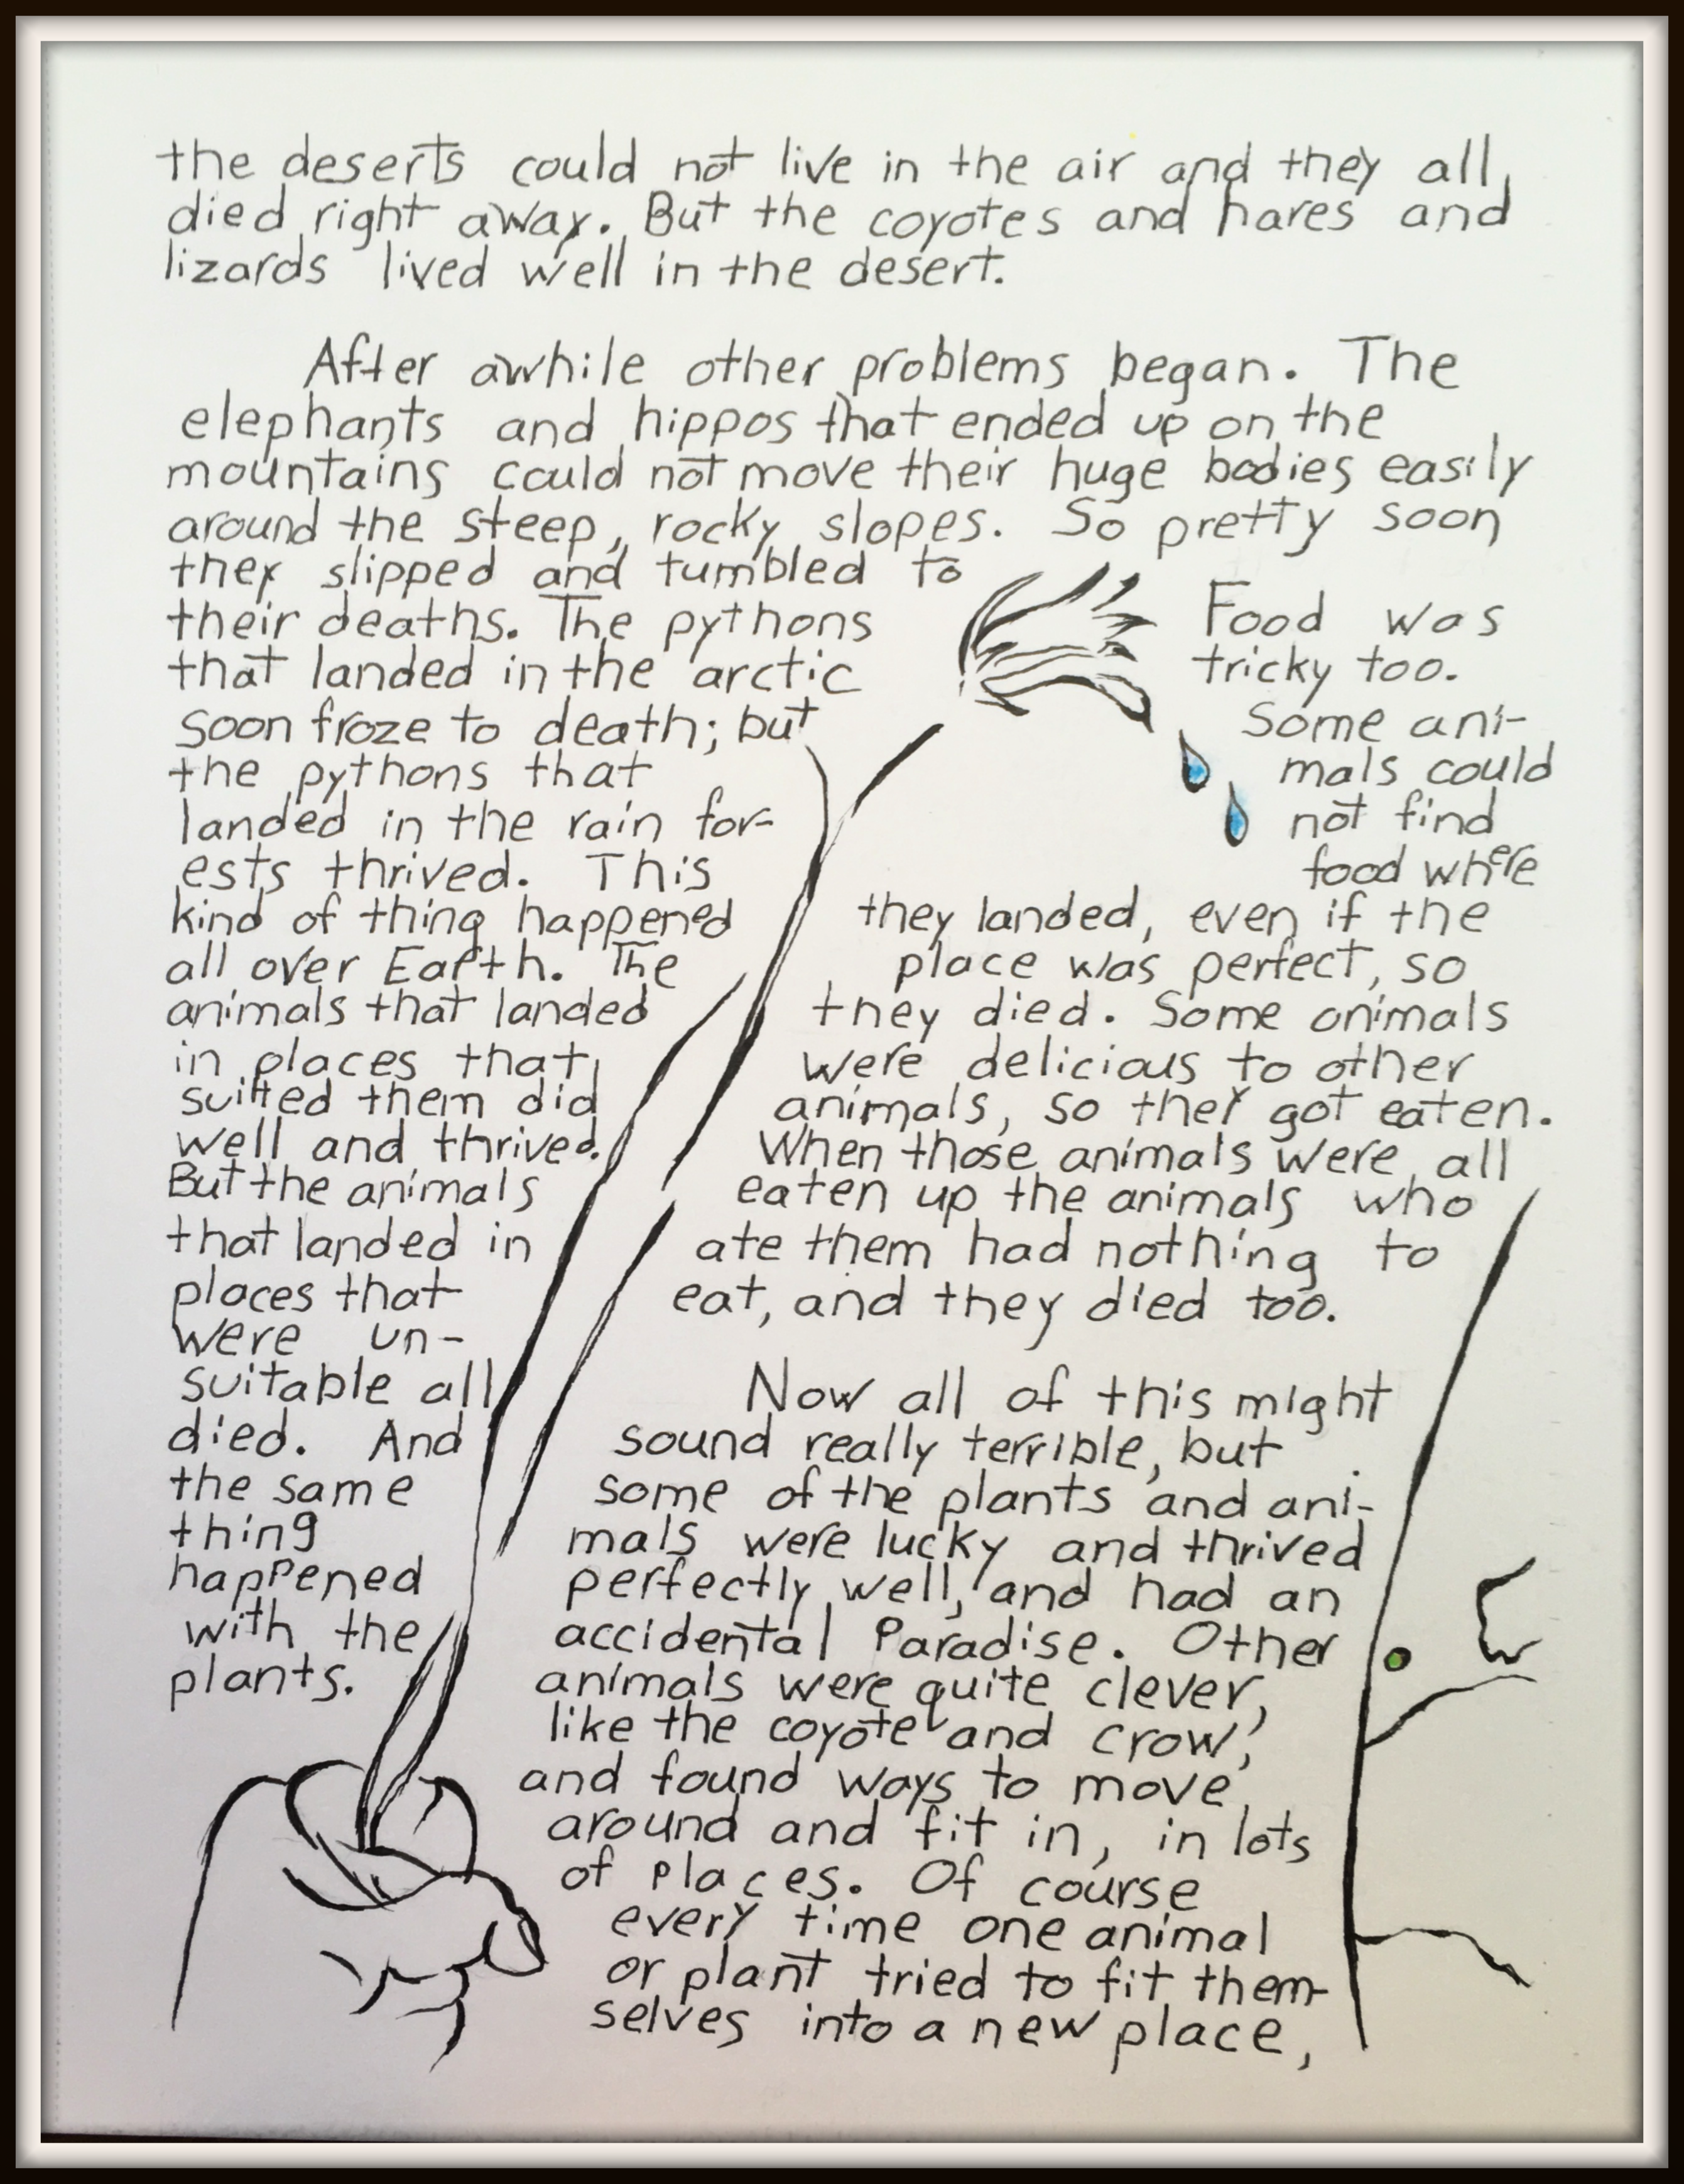 the deserts could not live in the air and they all
died right away. But the coyotes and hares and
lizards lived well in the desert.
After awhile other problems began. The
elephants and hippos that ended up on the
mountains could not move their huge bodies easily
around the steep, rocky slopes. So pretty soon
they slipped and tumbled to
their deaths. The pythons
that landed in the arctic
soon froze to death; but
the pythons that
landed in the rain for-
ests thrived. This
kind of thing happened
all over Earth. The
animals that landed
in places that
suited them did
well and thrived.
But the animals
that landed in
places that
were un-
suitable all
died. And
the same
thing
happened
with the
plants.
Food was
tricky too.
Some ani-
mals could
not find
food where
they landed, even if the
place was perfect, so
they died. Some animals
were delicious to other
animals, so they got eaten.
When those animals were all
eaten up the animals who
ate them had nothing to
eat, and they died too.
Now all of this might
sound really terrible, but
some of the plants and ani-
mals were lucky and thrived
perfectly well, and had an
accidental Paradise. Other
animals were quite clever,
like the coyote and crow,
and found ways to move
around and fit in, in lots
of places. Of course
every time one animal
or plant tried to fit them-
selves into a new place,